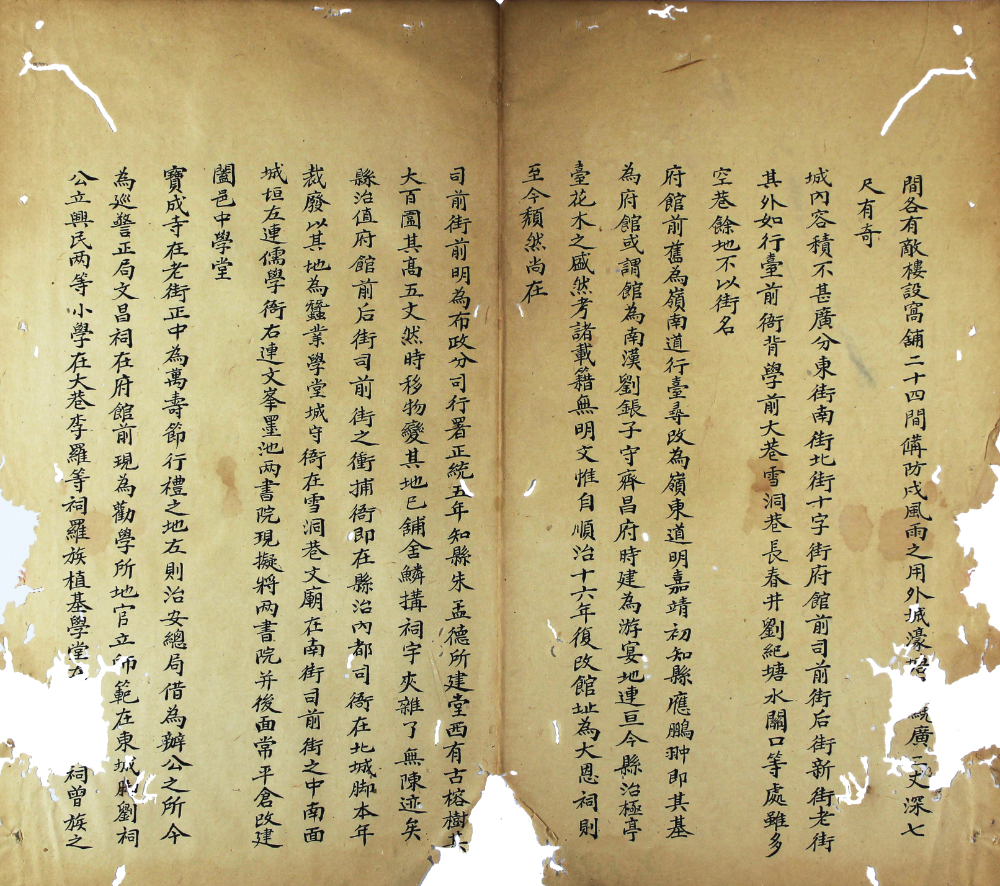 間各有敵樓設窩舖二十四間備防戍風雨之用外城濠 繞廣二丈深七
尺有奇
城內容積不甚廣分東街南街北街十字街府館前司前街后街新街老街
其外如行臺前衙背學前大巷雪洞巷長春井劉紀塘水關口等處雖多
空巷餘地不以街名
府館前舊為嶺南道行臺尋改為嶺東道明嘉靖初知縣應鵬翀即其基
為府館或謂館為南漢劉鋹子守齊昌府時建為游宴地連亘今縣治極亭
臺花木之盛然考諸載籍無明文惟自順治十六年復改館址為大恩祠則
至今頹然尚在
司前街前明為布政分司行署正統五年知縣朱孟德所建堂西有古榕樹其
大百圍其高五丈然時移物變其地已舖舍鱗搆祠宇夾雜了無陳迹矣
縣治值府館前后街司前街之衝捕衙即在縣治內都司衙在北城脚本年
裁廢以其地為蠶業學堂城守衙在雪洞巷文廟在南街司前街之中南面
城垣左連儒學衙右連文峯墨池两書院現擬將两書院并後面常平倉改建
闔邑中學堂
寶成寺在老街正中為萬壽節行禮之地左則治安總局借為辦公之所今
為巡警正局文昌祠在府館前現為勸學所地官立師範在東城脚劉祠
公立興民两等小學在大巷李羅等祠羅族植基學堂 祠曾族之